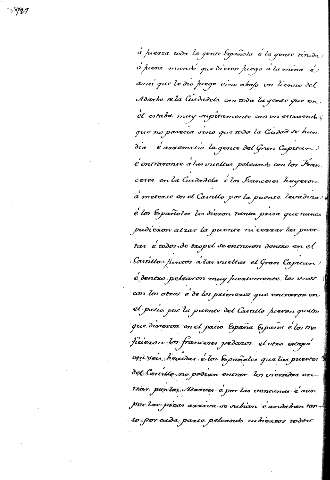 á fuerza toda la gente Española é la gente
ó fuese mando que diesen fuego á la mina é
ansi que le dio fuego vino abajo un lienzo del
Adarbe de la Ciudadela con toda la gente que en
él estaba muy supitamente con un estruendo
que no parecia sino que toda la Ciudad se hun
dia é arremetio la gente del Gran Capitan
é entraronse á las vueltas peleando con los Fran
ceses en la Ciudadela é los Franceses huyeron
á meterse en el Castillo por la puente levadiza
é los Españoles les dieron tanta priesa que nunca
pudieron alzar la puente ni cerrar las puer
tas é todos de tropel se entraron dentro en el
Castillo juntos á las vueltas el Gran Capitan
é dentro pelearon muy fuertemente los unos
con los otros é de los primeros que entraron en
el patio por la puente del Castillo fueron
que dixeron en el patio España España é los
ficieron los franceses pedazos el otro escapó
heridas é los Españoles que las puertas
del Castillo no podian entrar
por las é por las é aun
por las picas arriba se subian é andaban tan
to por cada parte peleando